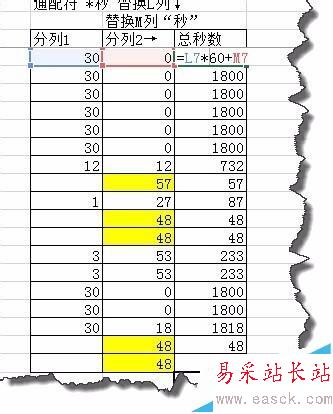 通配符 *秒 替换L列↓
替换M列“秒”
分列1 分列2→ 总秒数
30 0 =L7*60+M7
30 0 1800
30 0 1800
30 0 1800
30 0 1800
12 12 732
57 57
1 27 87
48 48
48 48
3 53 233
3 53 233
30 0 1800
30 0 1800
30 18 1818
48 48
48
易采站长站
www.easck.com